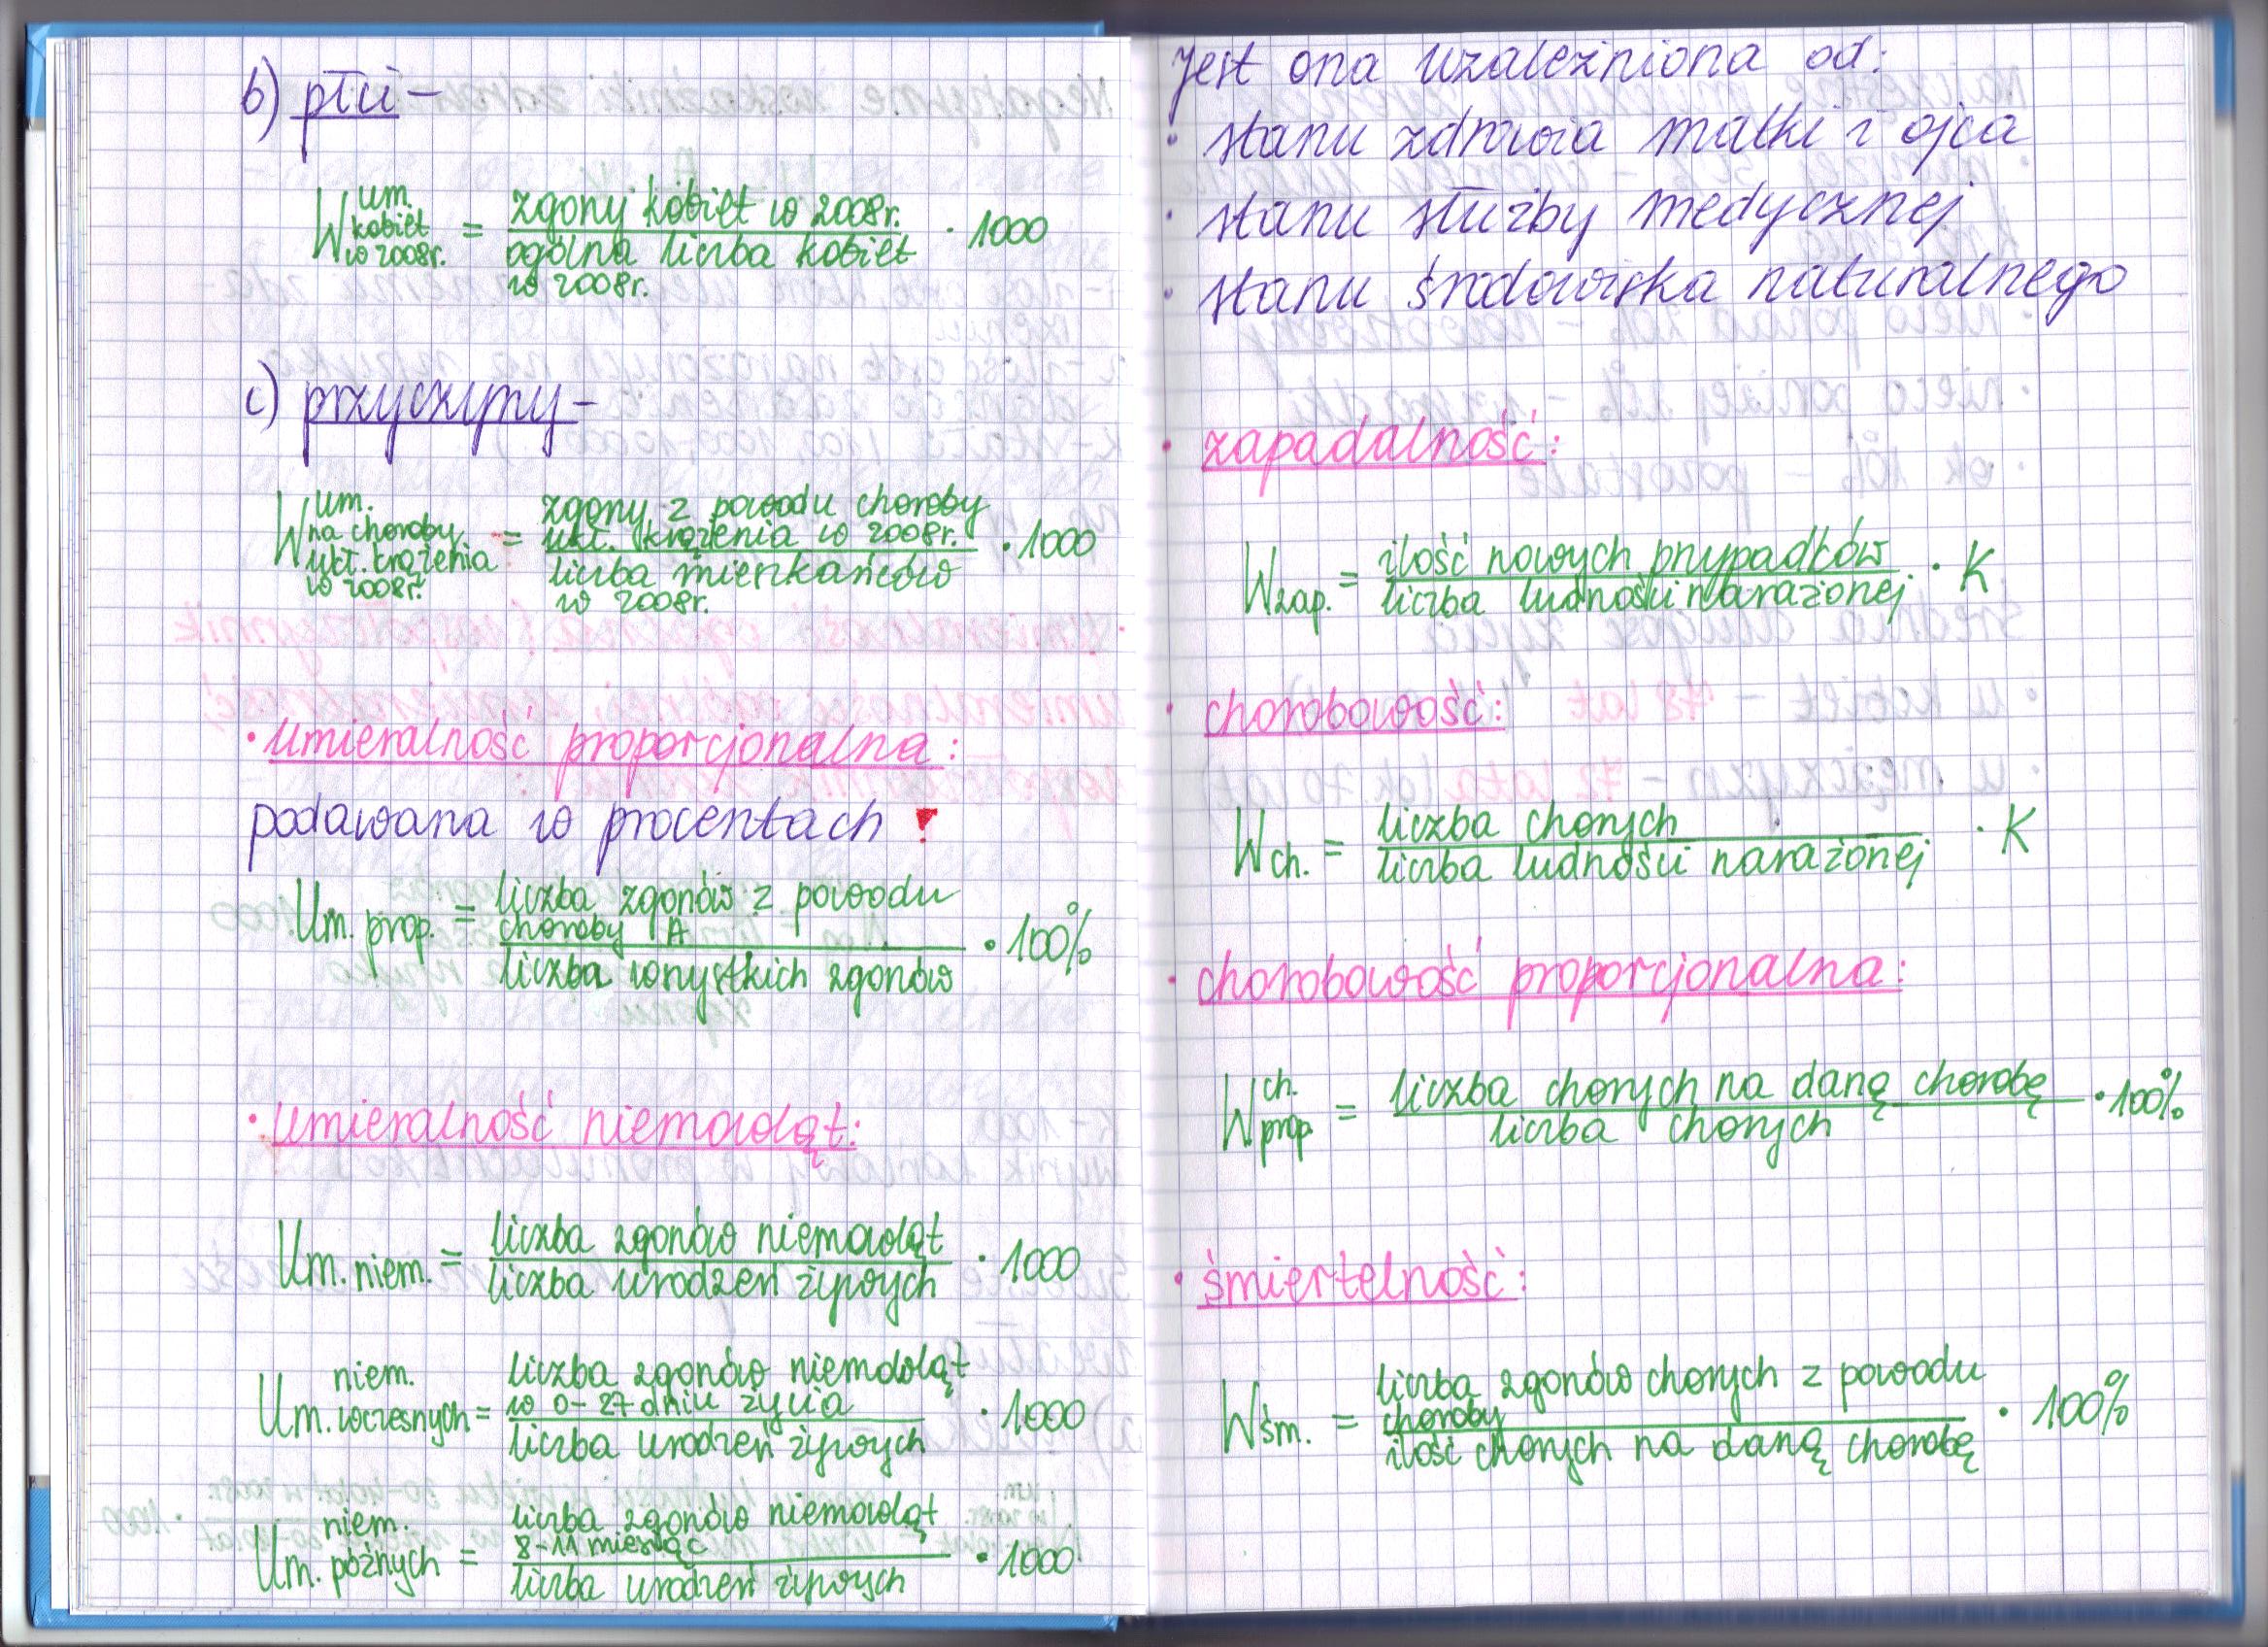 b) płci –
W um. kobiet w 2008r. = zgony kobiet w 2008r. / ogólna liczba kobiet w 2008r. · 1000
c) przyczyny –
W um. na choroby ukł. krążenia w 2008r. = zgony z powodu choroby ukł. krążenia w 2008r. / liczba mieszkańców w 2008r. · 1000
· umieralność proporcjonalna:
podawana w procentach !
Um. prop. = liczba zgonów z powodu choroby A / liczba wszystkich zgonów · 100%
· umieralność niemowląt:
Um. niem. = liczba zgonów niemowląt / liczba urodzeń żywych · 1000
Um. niem. wczesnych = liczba zgonów niemowląt w 0-27 dniu życia / liczba urodzeń żywych · 1000
Um. niem. późnych = liczba zgonów niemowląt 8-11 miesiąc / liczba urodzeń żywych · 1000
Jest ona uzależniona od:
· stanu zdrowia matki i ojca
· stanu służby medycznej
· stanu środowiska naturalnego
· zapadalność:
W zap. = ilość nowych przypadków / liczba ludności narażonej · K
· chorobowość:
W ch. = liczba chorych / liczba ludności narażonej · K
· chorobowość proporcjonalna:
W ch. prop. = liczba chorych na daną chorobę / liczba chorych · 100%
· śmiertelność:
W śm. = liczba zgonów chorych z powodu choroby / ilość chorych na daną chorobę · 100%